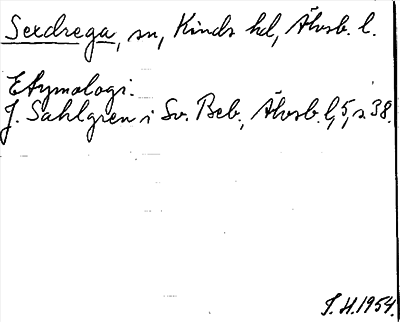 Sexdrega, sn, Kinds hd, Älvsb. l.
Etymologi.
J. Sahlgren i Sv. Beb., Älvsb. l, 5, s. 38.
S. H. 1954.